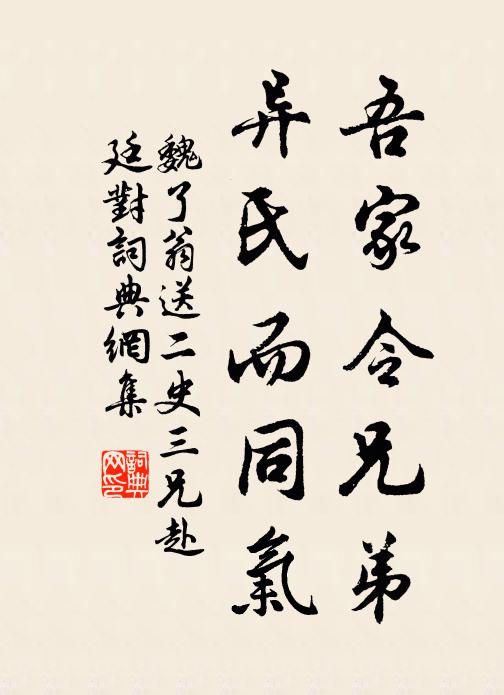 吾家令兄弟
异氏而同氣
魏了翁送二史三兄赴
廷對詞典網集
詞典
网印